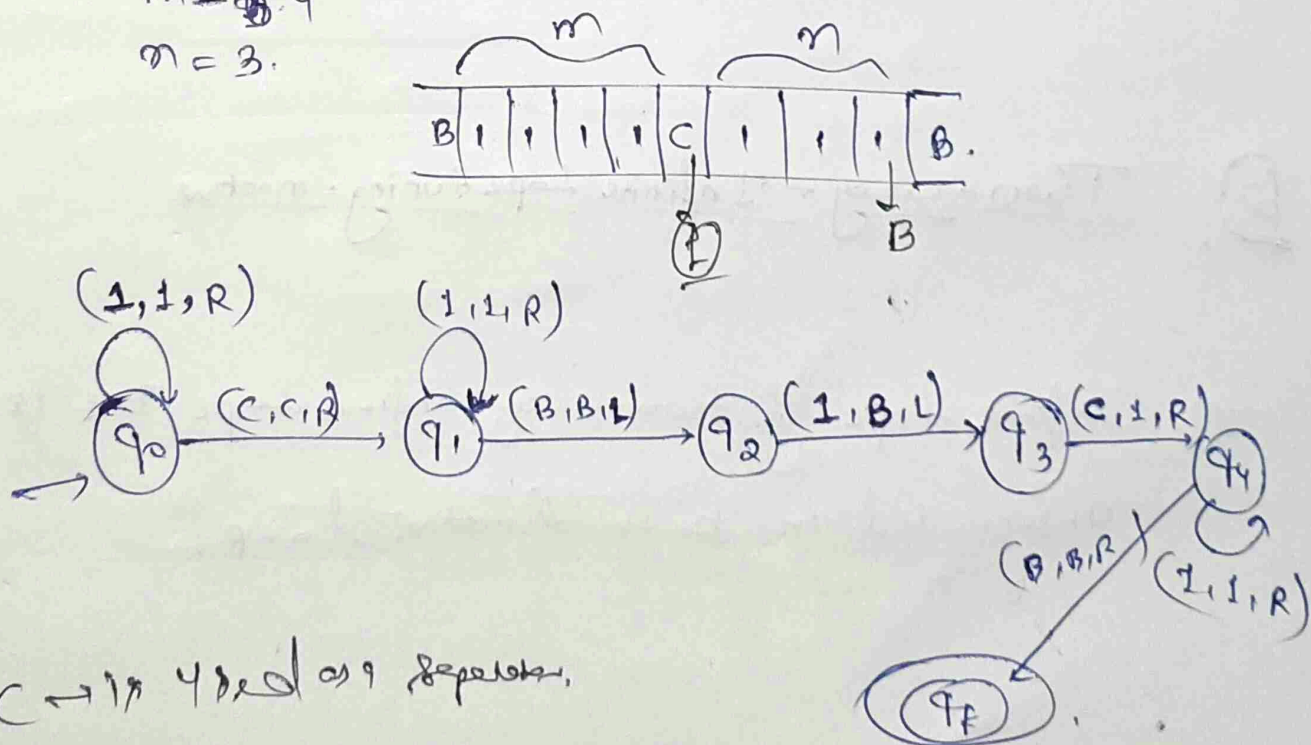 n = 3.
m n
B 1 1 1 1 C 1 1 1 B.
1 B
(1,1,R) (1,1,R)
q0 (C,C,R) q1 (B,B,L) q2 (1,B,L) q3 (C,1,R) q4
(B,B,R) (1,1,R)
C → is used as a
qf.